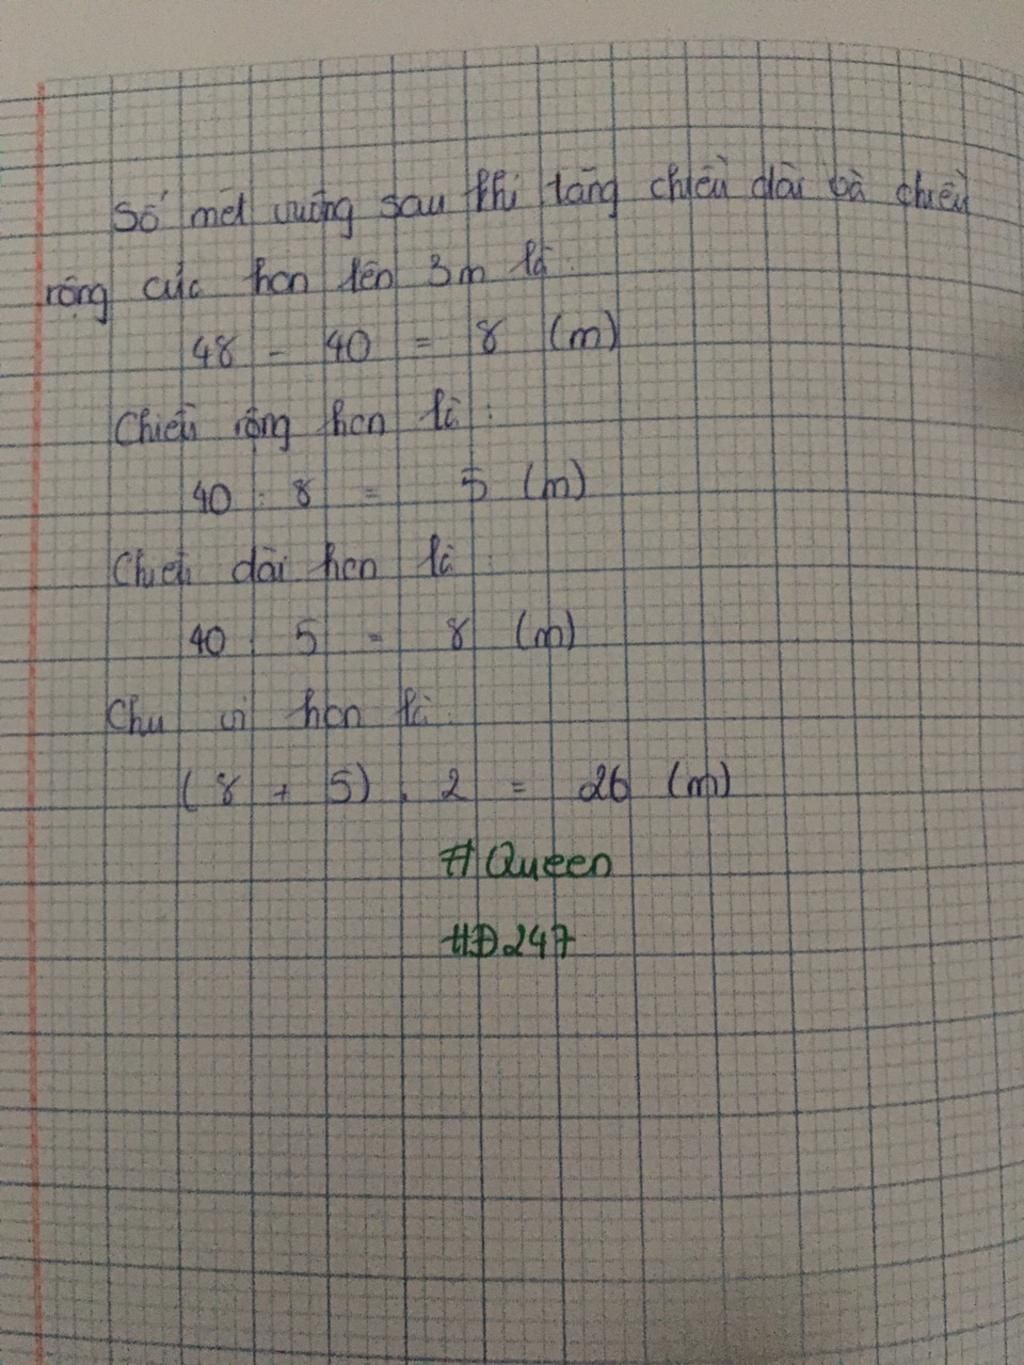 Số mét vuông sau khi tăng chiều dài và chiều
rộng của hcn lên 3m là:
48 - 40 = 8 (m)
Chiều rộng hcn là:
40 : 8 = 5 (m)
Chiều dài hcn là:
40 : 5 = 8 (m)
Chu vi hcn là:
(8 + 5) . 2 = 26 (m)
#Queen
#Đ247